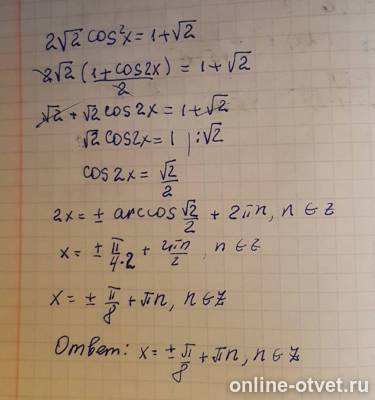 2√2 cos²x = 1+√2
2√2 (1+cos2x)/2 = 1+√2
√2 + √2 cos2x = 1+√2
√2 cos2x = 1 | :√2
cos 2x = √2/2
2x = ± arccos √2/2 + 2πn, n ∈ Z
x = ± π/4·2 + 2πn/2, n ∈ Z
x = ± π/8 + πn, n ∈ Z
Ответ: x = ± π/8 + πn, n ∈ Z
online-otvet.ru